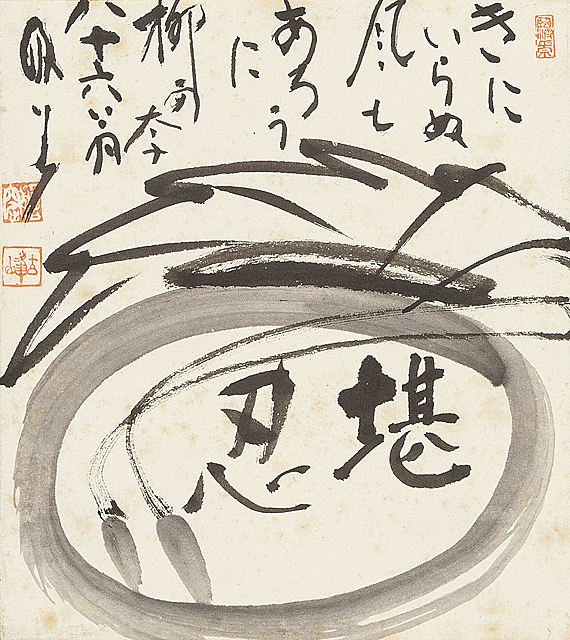 きに
いらぬ
風も
あろう
に
柳可奈
八十六翁
堪忍